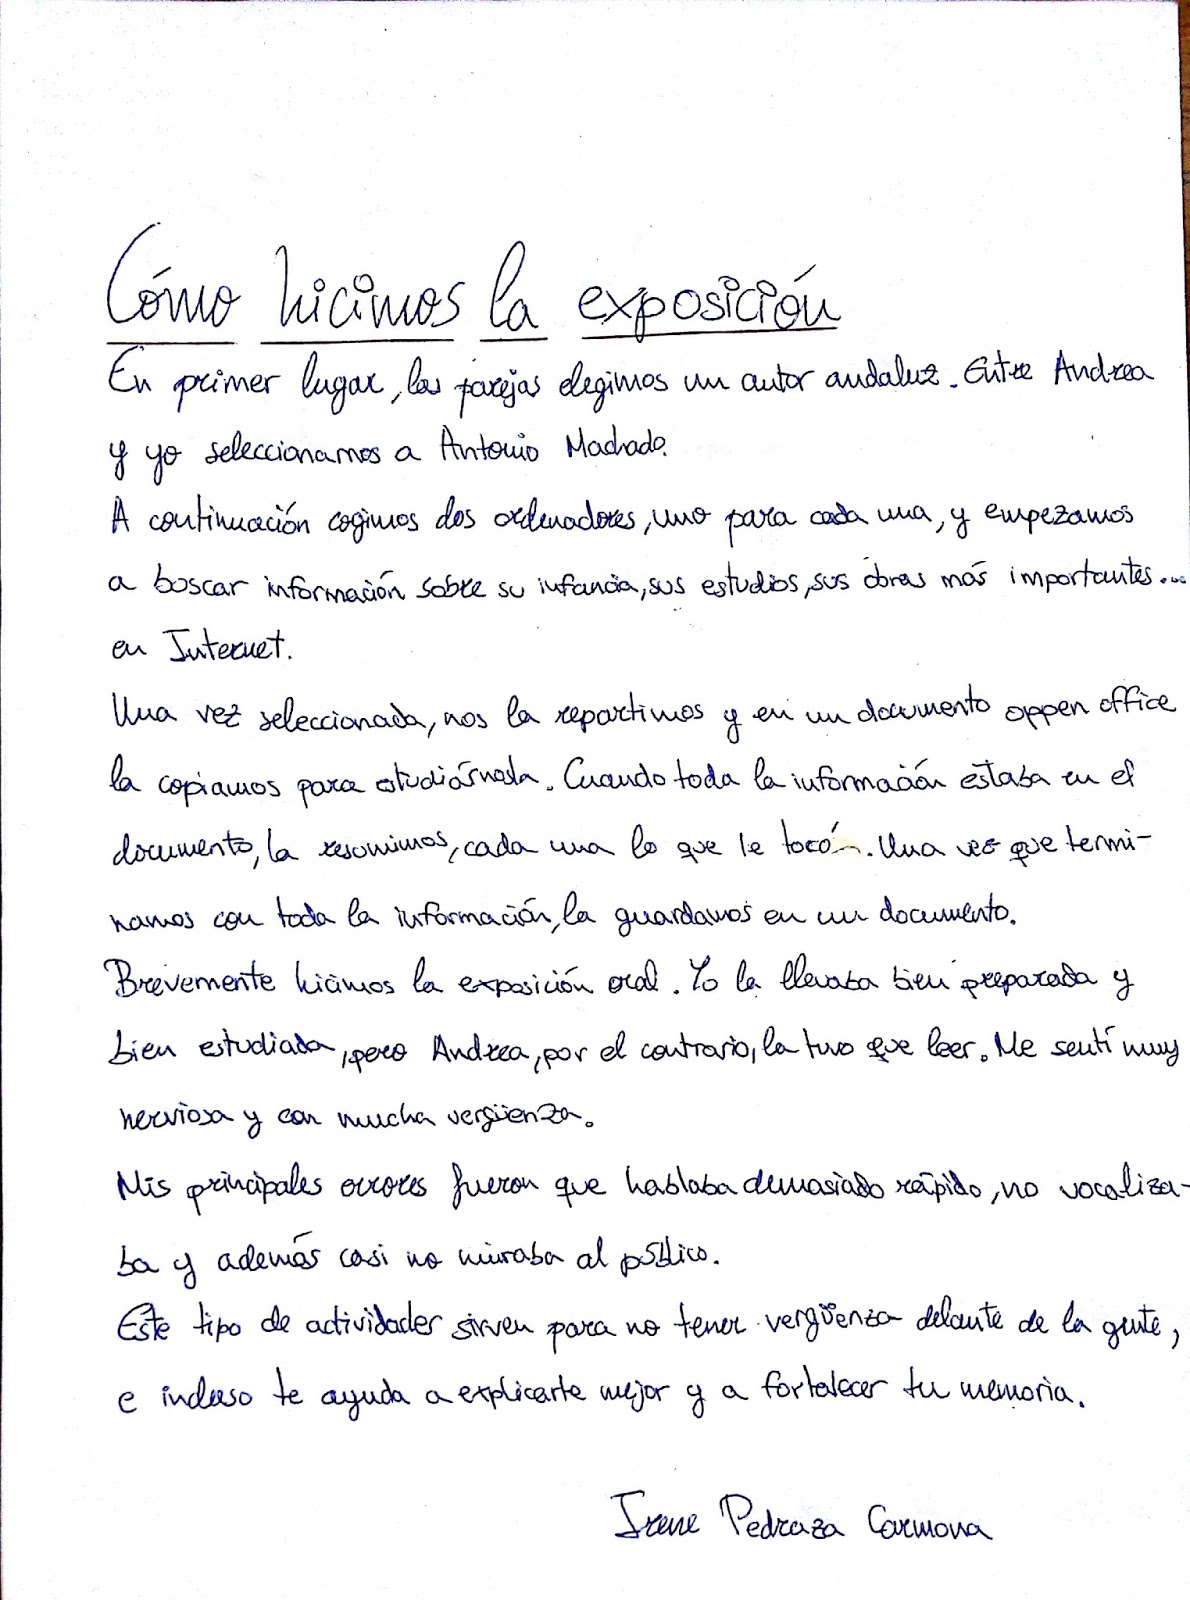 Cómo hicimos la exposición
En primer lugar, las parejas elegimos un autor andaluz. Entre Andrea
y yo seleccionamos a Antonio Machado.
A continuación cogimos dos ordenadores, uno para cada una, y empezamos
a buscar información sobre su infancia, sus estudios, sus obras más importantes...
en Internet.
Una vez seleccionada, nos la repartimos y en un documento oppen office
la copiamos para estudiárnosla. Cuando toda la información estaba en el
documento, la resumimos, cada una lo que le tocó. Una vez que termi-
namos con toda la información, la guardamos en un documento.
Brevemente hicimos la exposición oral. Yo la llevaba bien preparada y
bien estudiada, pero Andrea, por el contrario, la tuvo que leer. Me sentí muy
nerviosa y con mucha vergüenza.
Mis principales errores fueron que hablaba demasiado rápido, no vocaliza-
ba y además casi no miraba al público.
Este tipo de actividades sirven para no tener vergüenza delante de la gente,
e incluso te ayuda a explicarte mejor y a fortalecer tu memoria.
Irene Pedraza Carmona